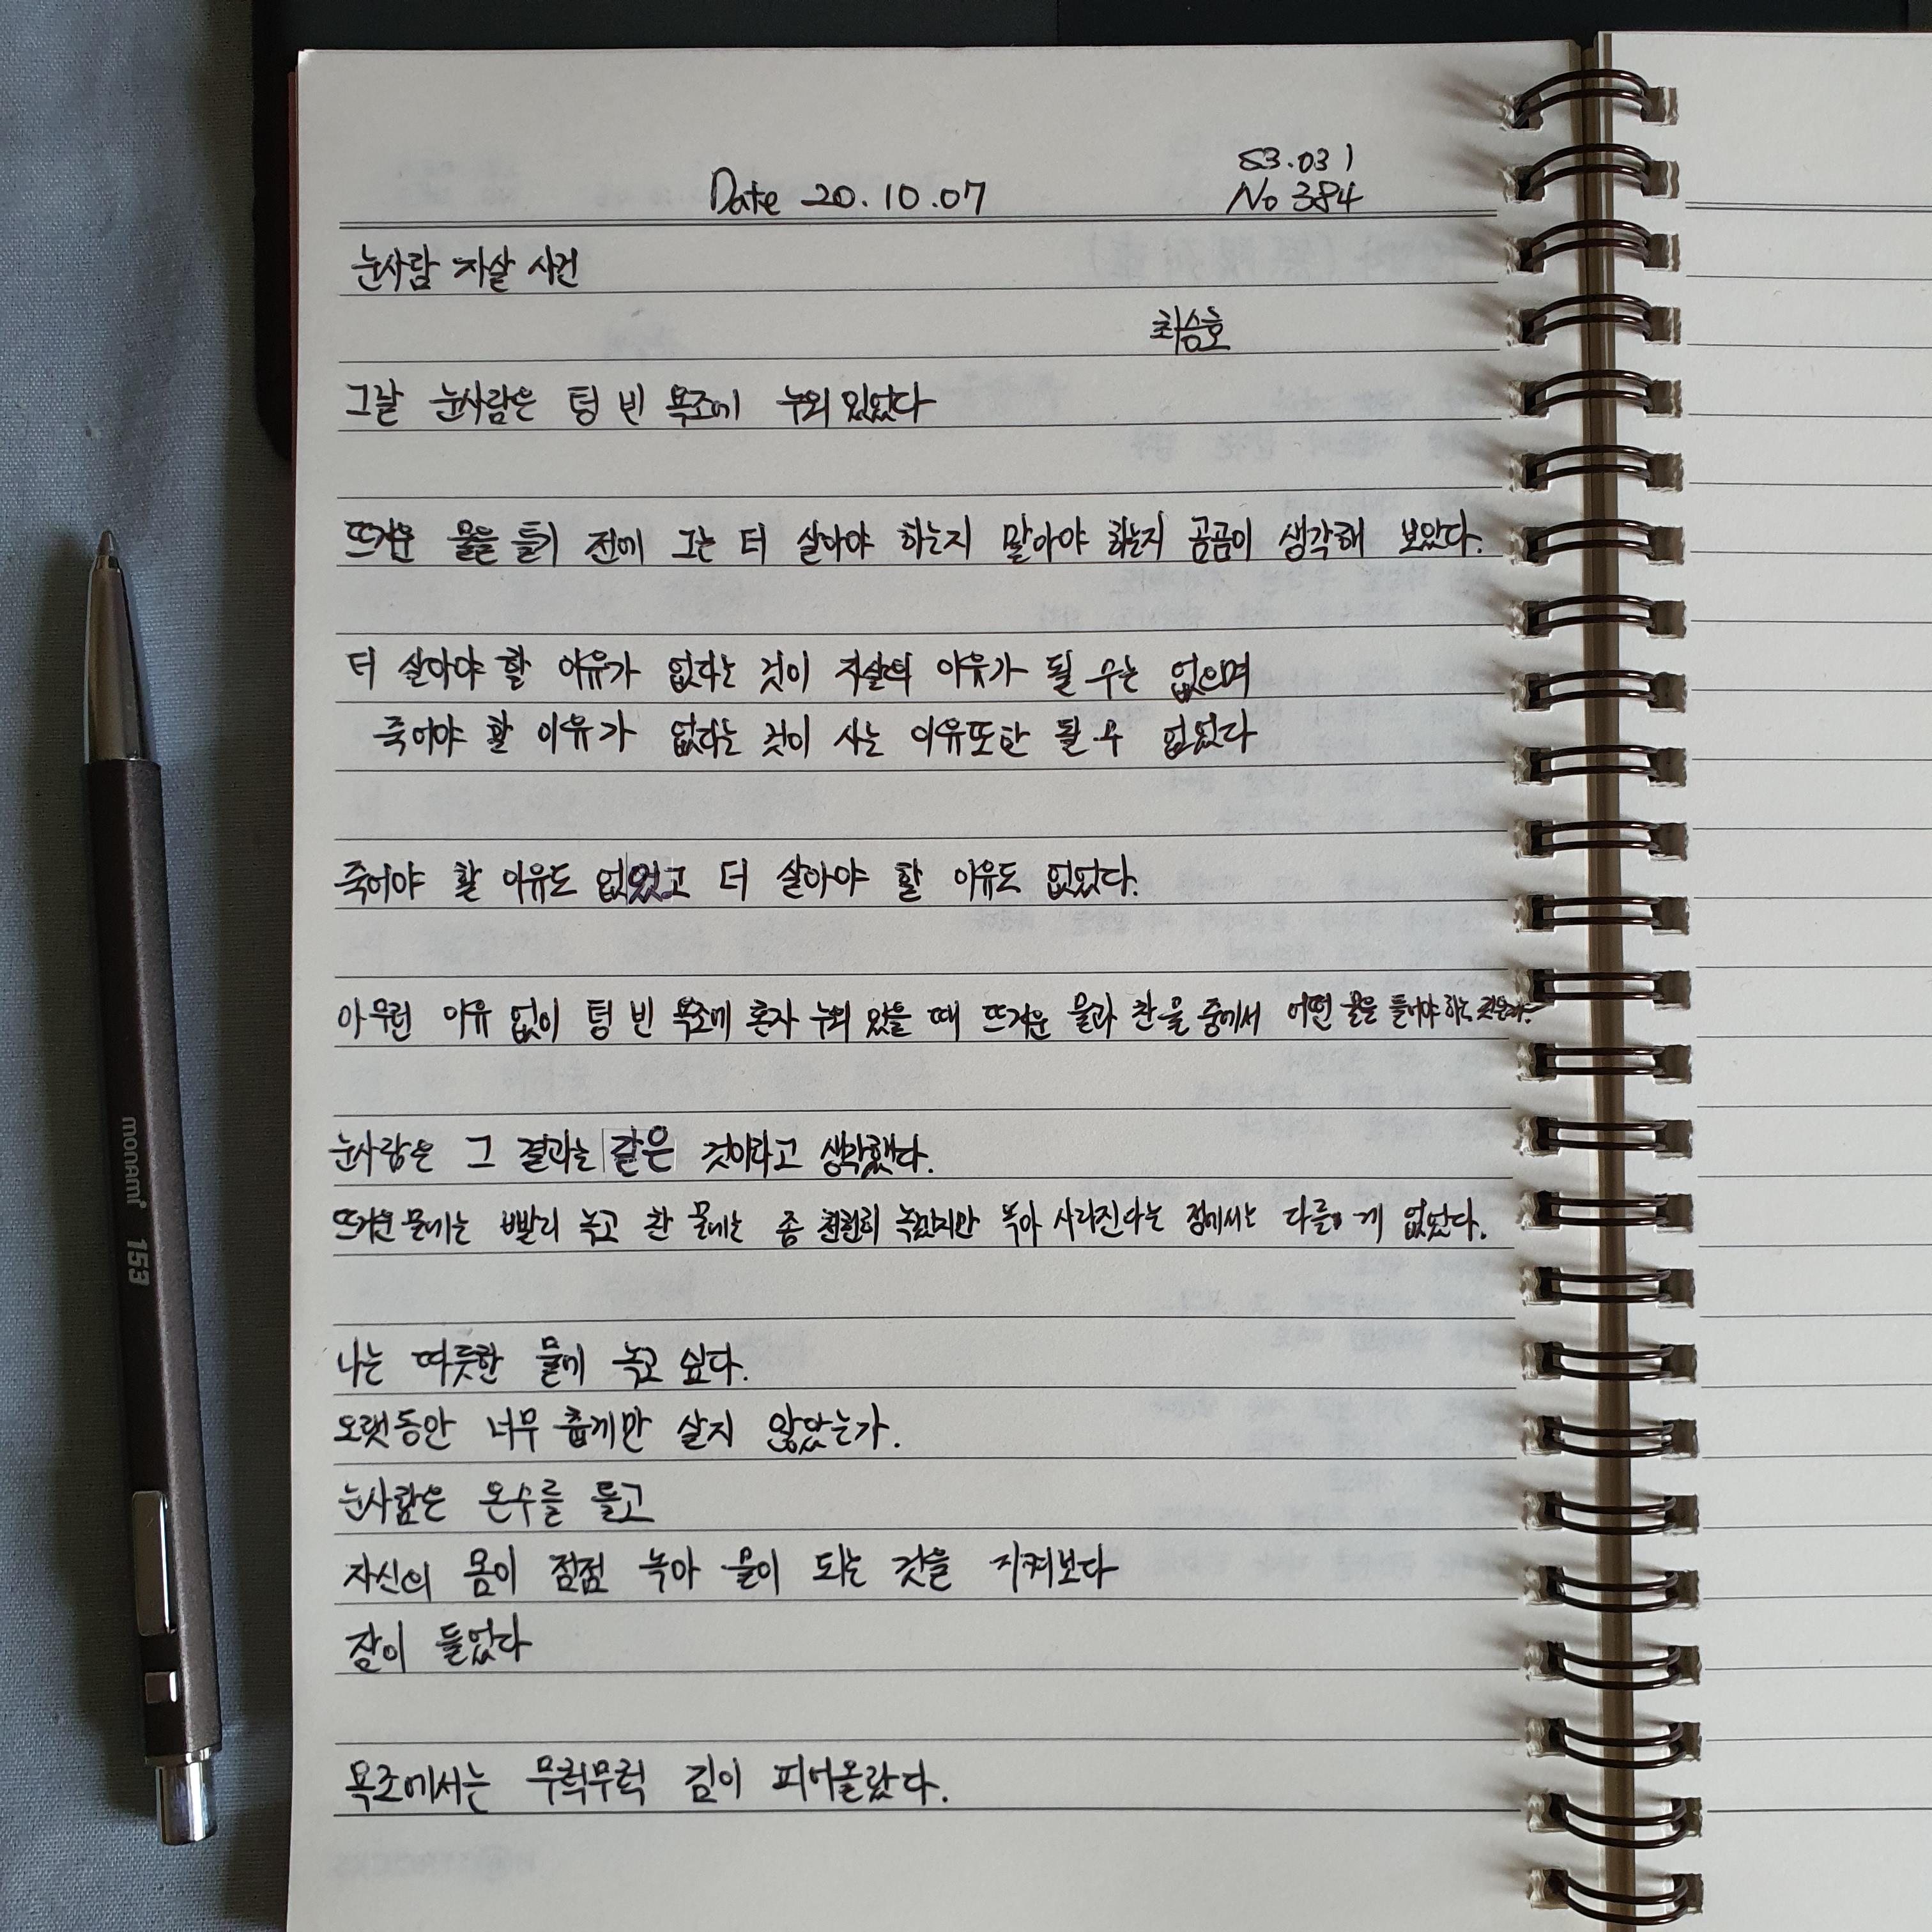 S3.031
Date 20.10.07 No 384
눈사람 자살 사건
최승호
그날 눈사람은 텅 빈 욕조에 누워있었다
뜨거운 물을 틀기 전에 그는 더 살아야 하는지 말아야 하는지 곰곰이 생각해 보았다.
더 살아야 할 이유가 없다는 것이 자살의 이유가 될 수는 없으며
죽어야 할 이유가 없다는 것이 사는 이유또한 될 수 없었다
죽어야 할 이유도 없었고 더 살아야 할 이유도 없었다.
아무런 이유 없이 텅 빈 욕조에 혼자 누워 있을 때 뜨거운 물과 찬 물 중에서 어떤 물을 틀어야 하는 것일까?
눈사람은 그 결과는 같은 것이라고 생각했다.
뜨거운 물에는 빨리 녹고 찬 물에는 좀 천천히 녹겠지만 녹아 사라진다는 점에서는 다를 게 없었다.
나는 따뜻한 물에 녹고 싶다.
오랫동안 너무 춥게만 살지 않았는가.
눈사람은 온수를 틀고
자신의 몸이 점점 녹아 물이 되는 것을 지켜보다
잠이 들었다
욕조에서는 무럭무럭 김이 피어올랐다.
monami 153